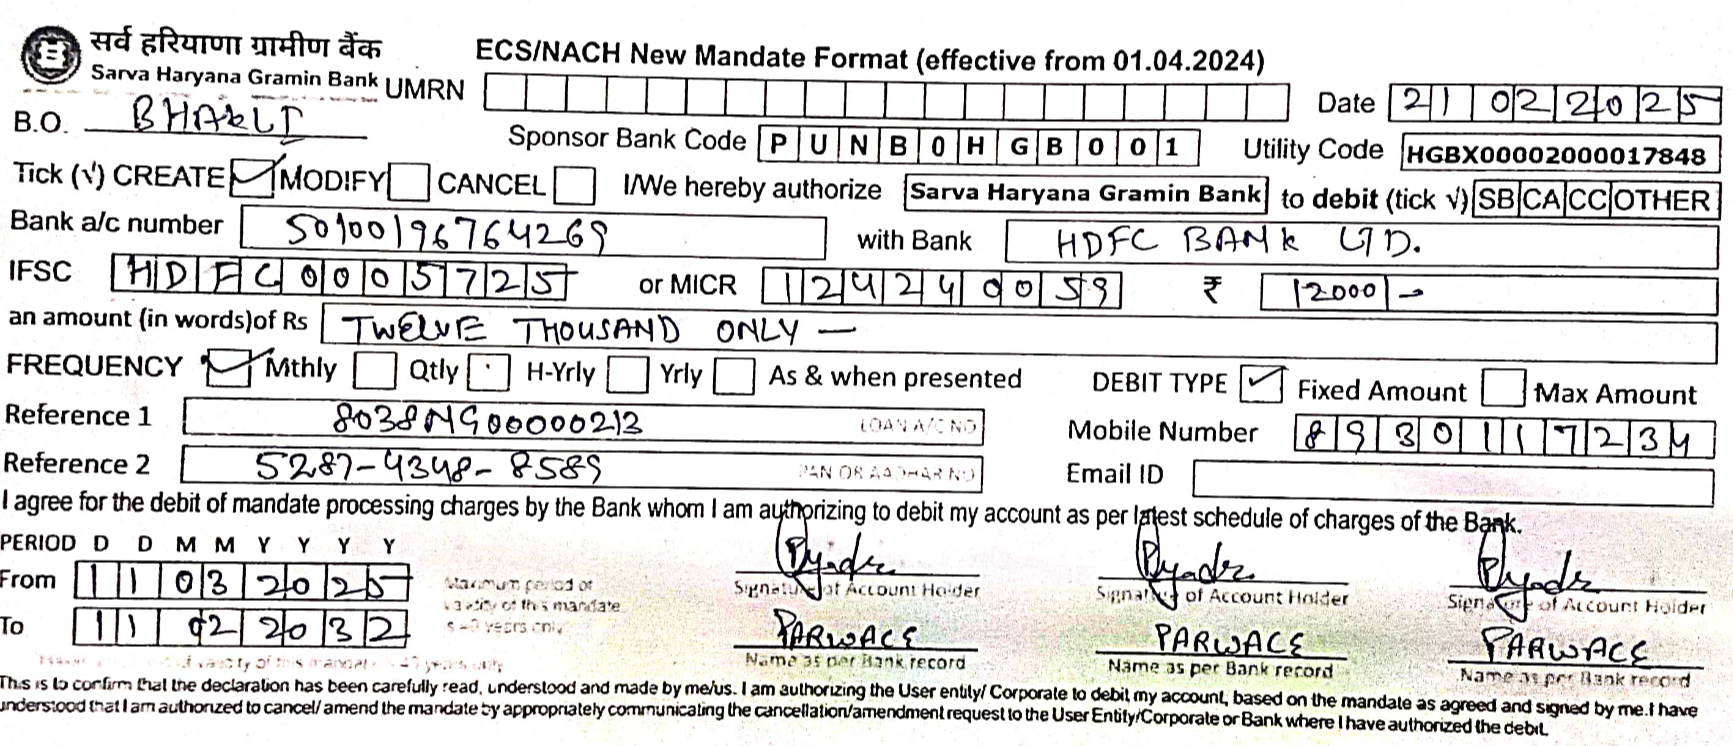 सर्व हरियाणा ग्रामीण बैंक
Sarva Haryana Gramin Bank
ECS/NACH New Mandate Format (effective from 01.04.2024)
UMRN
Date 21022025
B.O. BHAKLI
Sponsor Bank Code PUNB0HGB001 Utility Code HGBX00002000017848
Tick (√) CREATE MODIFY CANCEL I/We hereby authorize Sarva Haryana Gramin Bank to debit (tick √) SB CA CC OTHER
Bank a/c number 50100196764269 with Bank HDFC BANK LTD.
IFSC HDFC0005725 or MICR 124240059 ₹ 12000/-
an amount (in words)of Rs TWELVE THOUSAND ONLY —
FREQUENCY Mthly Qtly H-Yrly Yrly As & when presented DEBIT TYPE Fixed Amount Max Amount
Reference 1 8038NG00000213 LOAN A/C NO Mobile Number 8930117234
Reference 2 5287-4348-8589 PAN OR AADHAR NO Email ID
I agree for the debit of mandate processing charges by the Bank whom I am authorizing to debit my account as per latest schedule of charges of the Bank.
PERIOD D D M M Y Y Y Y
From 11032025 Maximum period of validity of this mandate is 40 years only
To 11022032
Signature of Account Holder Signature of Account Holder Signature of Account Holder
PARWACE PARWACE PARWACE
Name as per Bank record Name as per Bank record Name as per Bank record
This is to confirm that the declaration has been carefully read, understood and made by me/us. I am authorizing the User entity/ Corporate to debit my account, based on the mandate as agreed and signed by me.I have
understood that I am authorized to cancel/ amend the mandate by appropriately communicating the cancellation/amendment request to the User Entity/Corporate or Bank where I have authorized the debit.